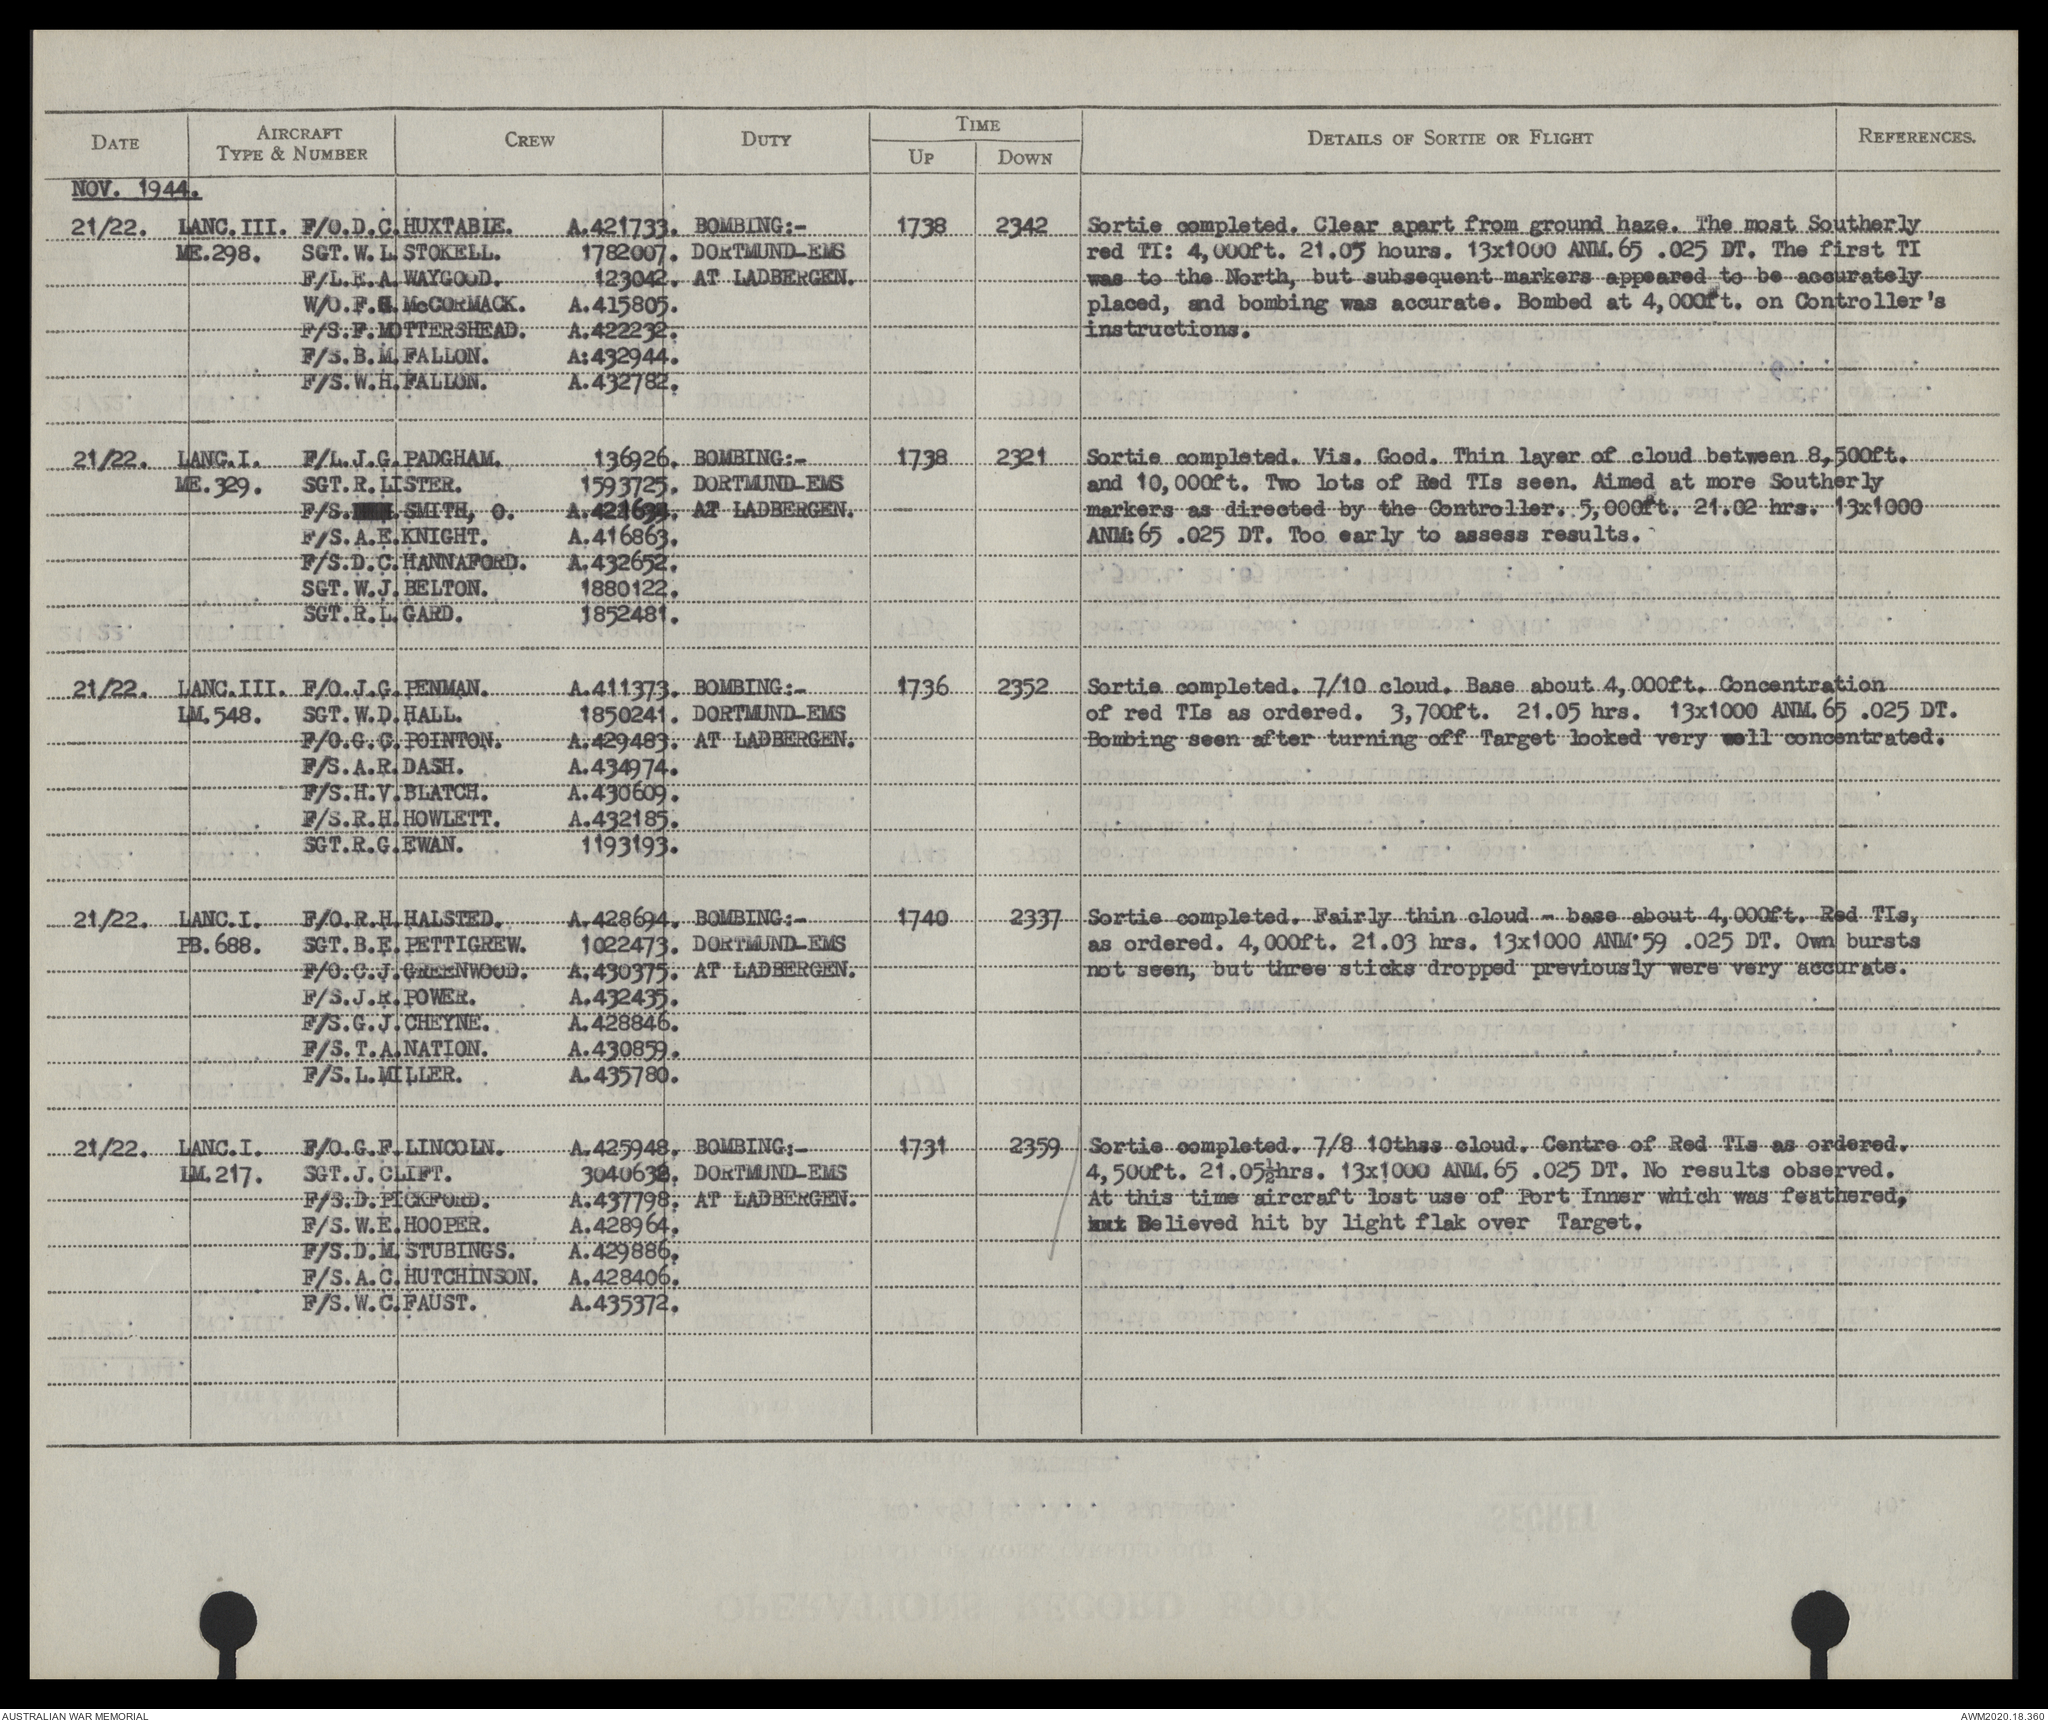 DATE
AIRCRAFT TYPE & NUMBER
CREW
DUTY
TIME
UP
DOWN
DETAILS OF SORTIE OR FLIGHT
REFERENCES.
NOV. 1944.
21/22. LANC.III. F/O.D.C.HUXTABLE. A.421733. BOMBING:- 1738 2342 Sortie completed. Clear apart from ground haze. The most Southerly
ME.298. SGT.W.L.STOKELL. 1782007. DORTMUND-EMS red TI: 4,000ft. 21.05 hours. 13x1000 ANM.65 .025 DT. The first TI
F/L.E.A.WAYGOOD. 123042. AT LADBERGEN. was to the North, but subsequent markers appeared to be accurately
W/O.F.G.McCORMACK. A.415805. placed, and bombing was accurate. Bombed at 4,000ft. on Controller's
F/S.F.MOTTERSHEAD. A.422232. instructions.
F/S.B.M.FALLON. A:432944.
F/S.W.H.FALLON. A.432782.
21/22. LANC.I. F/L.J.G.PADGHAM. 136926. BOMBING:- 1738 2321 Sortie completed. Vis. Good. Thin layer of cloud between 8,500ft.
ME.329. SGT.R.LISTER. 1593725. DORTMUND-EMS and 10,000ft. Two lots of Red TIs seen. Aimed at more Southerly
F/S. SMITH, O. A.421694. AT LADBERGEN. markers as directed by the Controller. 5,000ft. 21.02 hrs. 13x1000
F/S.A.E.KNIGHT. A.416863. ANM:65 .025 DT. Too early to assess results.
F/S.D.C.HANNAFORD. A.432652.
SGT.W.J.BELTON. 1880122.
SGT.R.L.GARD. 1852481.
21/22. LANC.III. F/O.J.G.PENMAN. A.411373. BOMBING:- 1736 2352 Sortie completed. 7/10 cloud. Base about 4,000ft. Concentration
LM.548. SGT.W.D.HALL. 1850241. DORTMUND-EMS of red TIs as ordered. 3,700ft. 21.05 hrs. 13x1000 ANM.65 .025 DT.
F/O.G.C.POINTON. A.429483. AT LADBERGEN. Bombing seen after turning off Target looked very well concentrated.
F/S.A.R.DASH. A.434974.
F/S.H.V.BLATCH. A.430609.
F/S.R.H.HOWLETT. A.432185.
SGT.R.G.EWAN. 1193193.
21/22. LANC.I. F/O.R.H.HALSTED. A.428694. BOMBING:- 1740 2337 Sortie completed. Fairly thin cloud - base about 4,000ft. Red TIs,
PB.688. SGT.B.E.PETTIGREW. 1022473. DORTMUND-EMS as ordered. 4,000ft. 21.03 hrs. 13x1000 ANM.59 .025 DT. Own bursts
F/O.C.J.GREENWOOD. A.430375. AT LADBERGEN. not seen, but three sticks dropped previously were very accurate.
F/S.J.R.POWER. A.432435.
F/S.G.J.CHEYNE. A.428846.
F/S.T.A.NATION. A.430859.
F/S.L.MILLER. A.435780.
21/22. LANC.I. F/O.G.F.LINCOLN. A.425948. BOMBING:- 1731 2359 Sortie completed. 7/8 10thss cloud. Centre of Red TIs as ordered.
LM.217. SGT.J.CLIFT. 3040638. DORTMUND-EMS 4,500ft. 21.05½hrs. 13x1000 ANM.65 .025 DT. No results observed.
F/S.D.PICKFORD. A.437798. AT LADBERGEN. At this time aircraft lost use of Port Inner which was feathered,
F/S.W.E.HOOPER. A.428964. Believed hit by light flak over Target.
F/S.D.M.STUBINGS. A.429886.
F/S.A.C.HUTCHINSON. A.428406.
F/S.W.C.FAUST. A.435372.
AUSTRALIAN WAR MEMORIAL
AWM2020.18.360